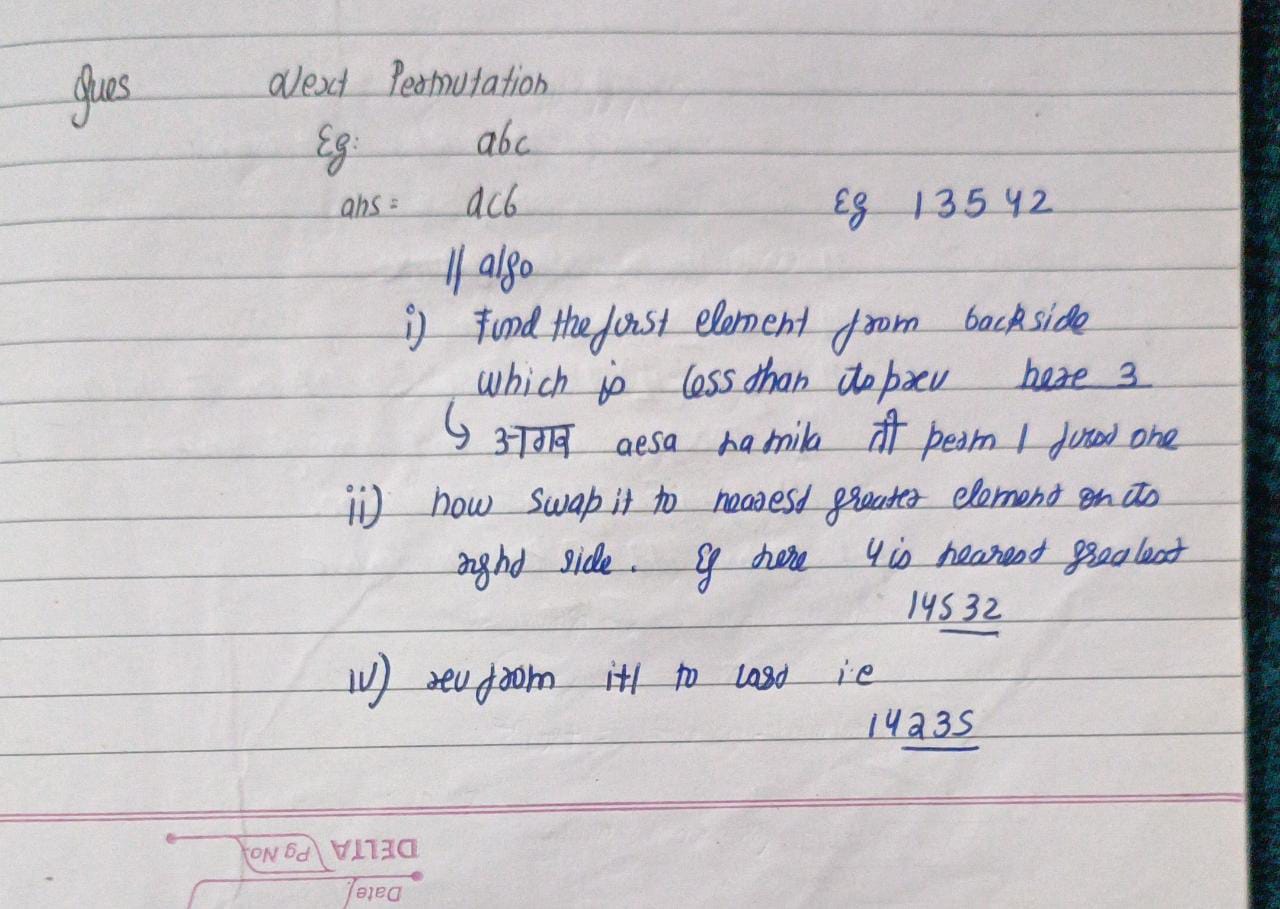 Ques Next Permutation
Eg: abc
ans = acb Eg 13542
// algo
i) Find the first element from backside
which is less than its prev here 3
↳ अगर aesa na mila तो perm 1 first one
ii) now swap it to nearest greater element on its
right side. Eg here 4 is nearest greatest
14532
iv) rev from i+1 to last i.e
14235
DELTA Pg No.
Date